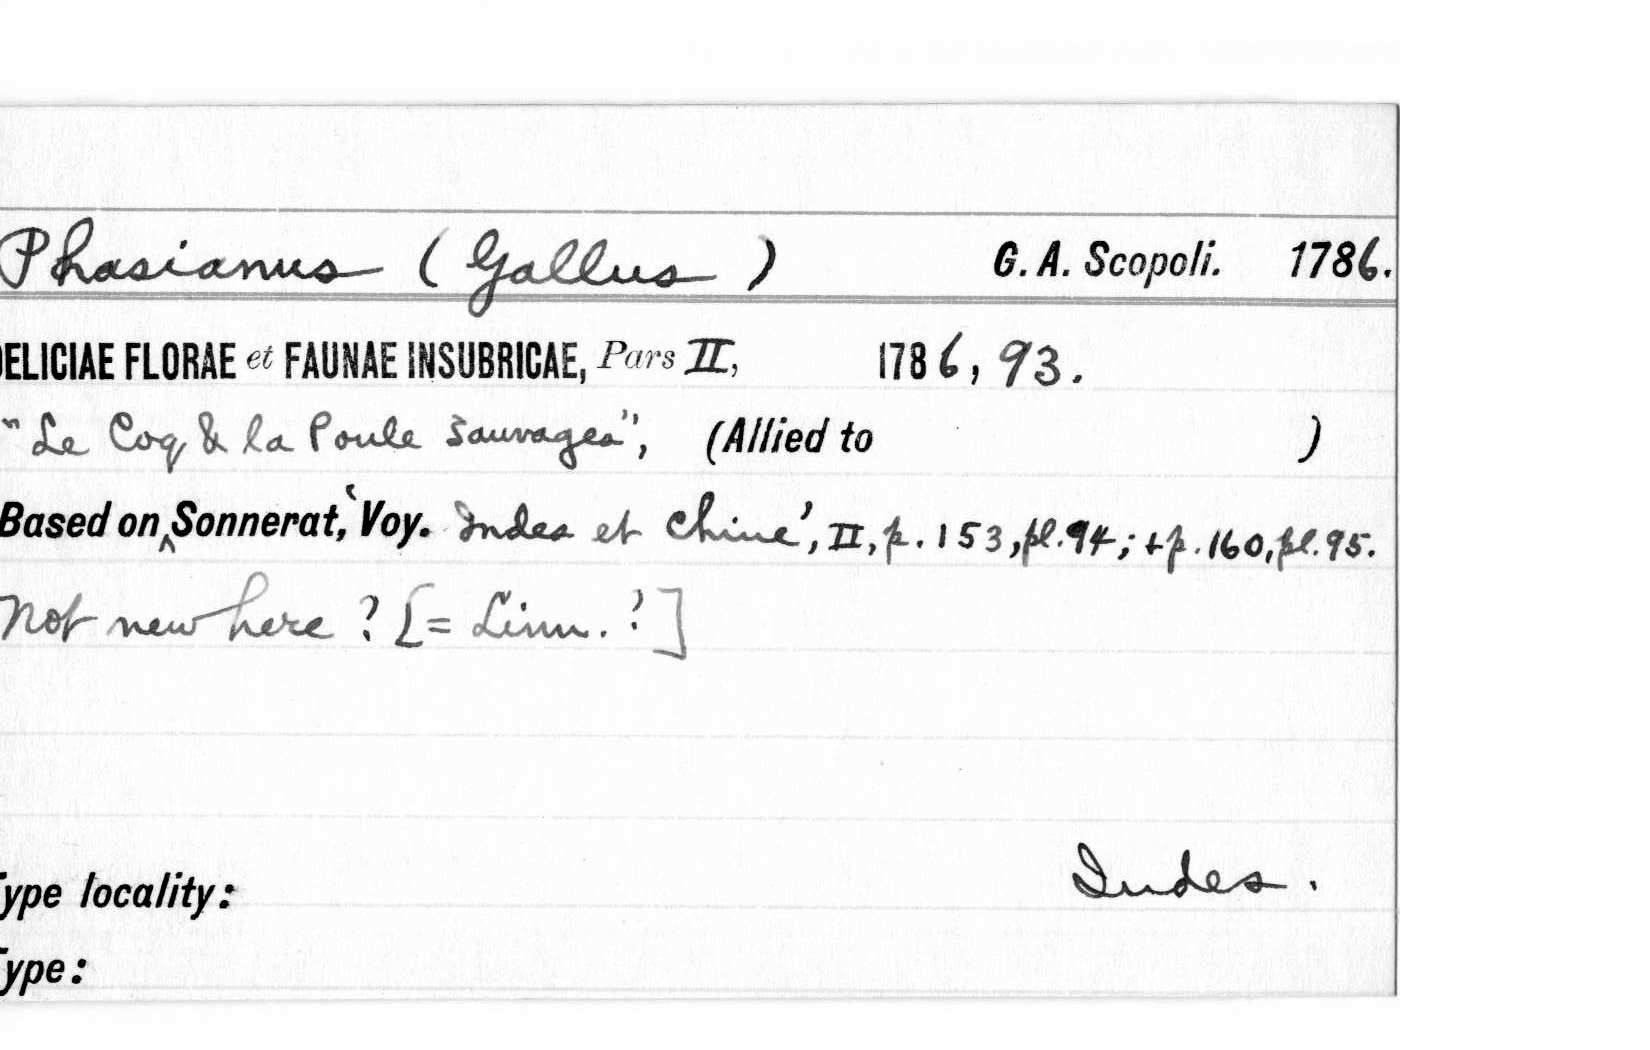 Phasianus (Gallus) G. A. Scopoli. 1786.
DELICIAE FLORAE et FAUNAE INSUBRICAE, Pars II, 1786, 93.
"Le Coq & la Poule Sauvages", (Allied to )
Based on ‸ Sonnerat, 'Voy. Indes et Chine', II, p. 153, pl. 94; + p. 160, pl. 95.
Not new here? [= Linn.?]
Type locality: Indes.
Type: